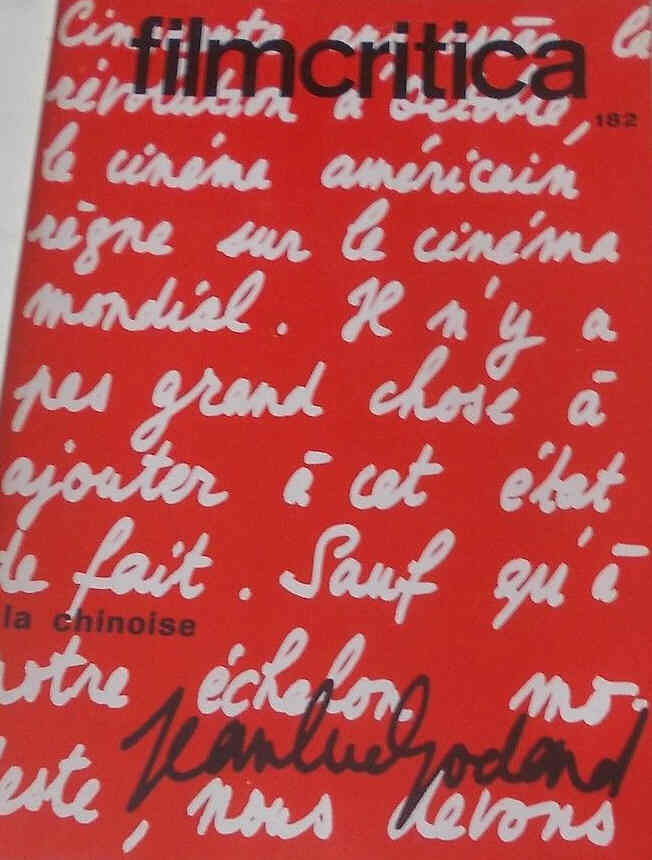 filmcritica
182
Cinquante ans après la
révolution d'Octobre,
le cinéma américain
règne sur le cinéma
mondial. Il n'y a
pas grand chose à
ajouter à cet état
de fait. Sauf qu'à
la chinoise
notre échelon mo-
deste, nous devons
Jean Luc Godard